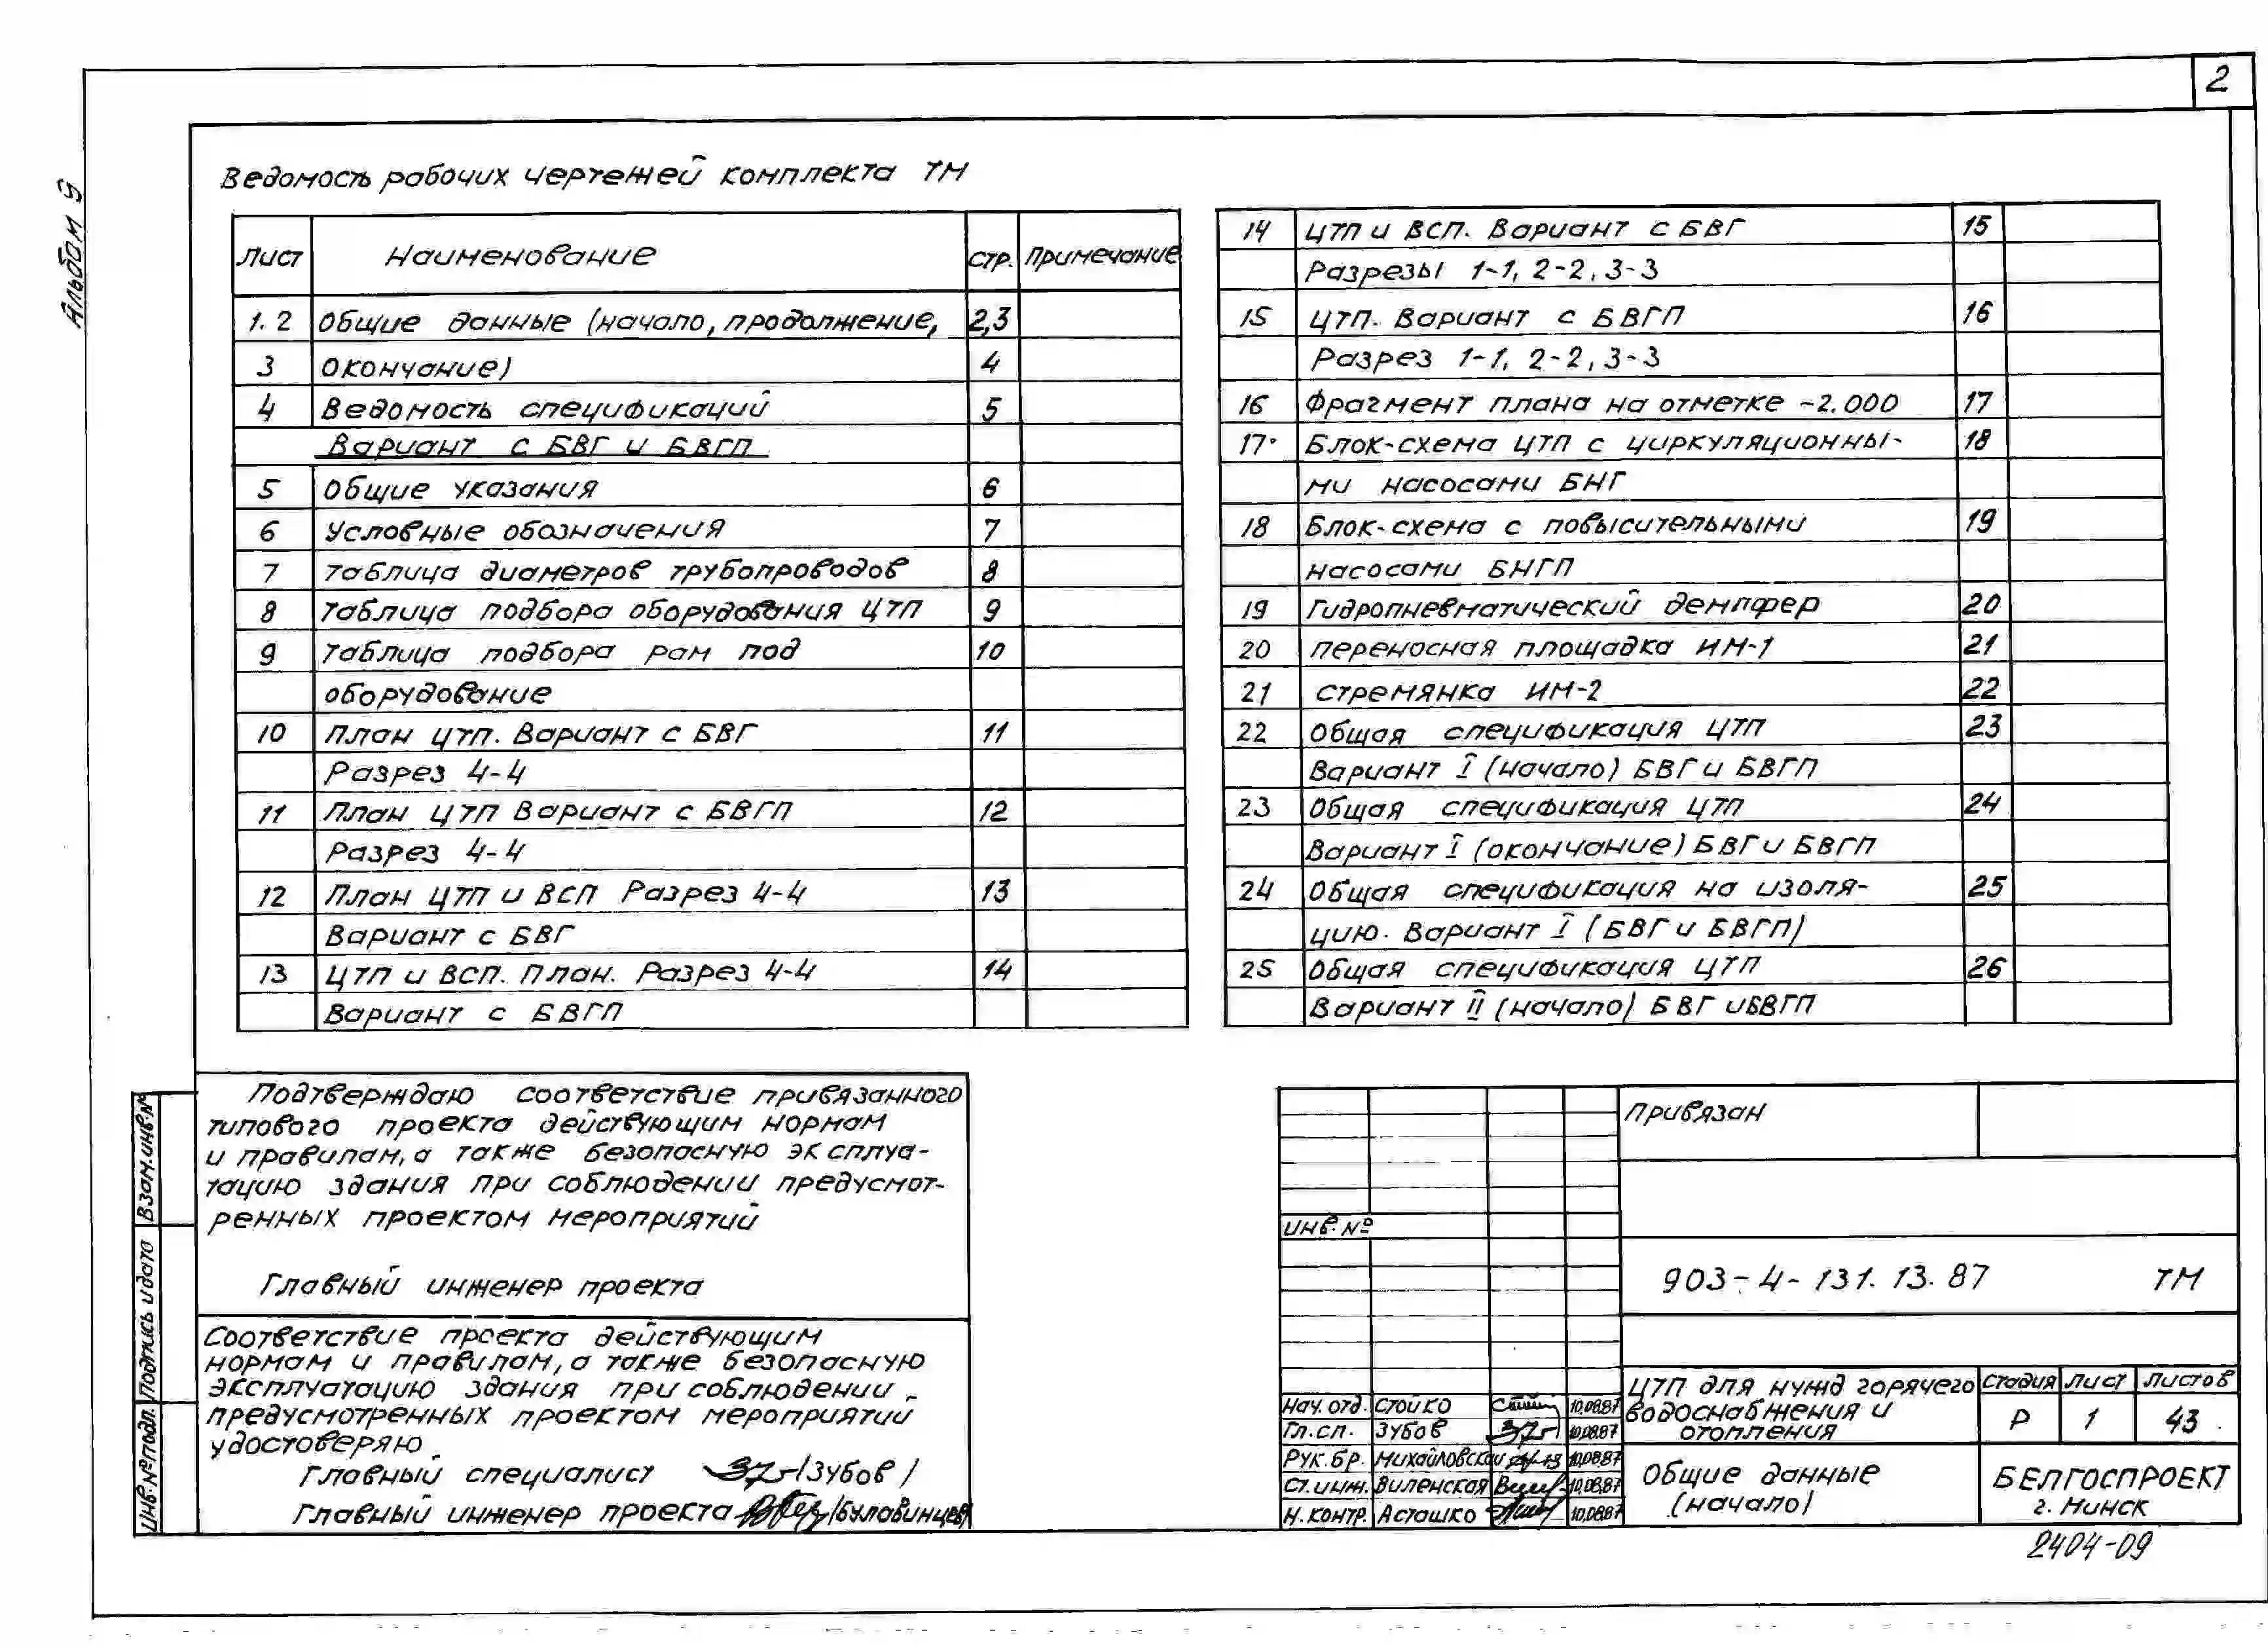 2
Альбом 9
Ведомость рабочих чертежей комплекта ТМ
Лист Наименование стр. Примечание
1. 2 Общие данные (начало, продолжение, 2,3
3 окончание) 4
4 Ведомость спецификаций 5
Вариант с БВГ и БВГП
5 Общие указания 6
6 Условные обозначения 7
7 Таблица диаметров трубопроводов 8
8 Таблица подбора оборудования ЦТП 9
9 Таблица подбора рам под 10
оборудование
10 План ЦТП. Вариант с БВГ 11
Разрез 4-4
11 План ЦТП Вариант с БВГП 12
Разрез 4-4
12 План ЦТП и ВСП Разрез 4-4 13
Вариант с БВГ
13 ЦТП и ВСП. План. Разрез 4-4 14
Вариант с БВГП
14 ЦТП и ВСП. Вариант с БВГ 15
Разрезы 1-1, 2-2, 3-3
15 ЦТП. Вариант с БВГП 16
Разрез 1-1, 2-2, 3-3
16 Фрагмент плана на отметке -2.000 17
17 Блок-схема ЦТП с циркуляционны- 18
ми насосами БНГ
18 Блок-схема с повысительными 19
насосами БНГП
19 Гидропневматический демпфер 20
20 Переносная площадка ИМ-1 21
21 Стремянка ИМ-2 22
22 Общая спецификация ЦТП 23
Вариант I (начало) БВГ и БВГП
23 Общая спецификация ЦТП 24
Вариант I (окончание) БВГ и БВГП
24 Общая спецификация на изоля- 25
цию. Вариант I (БВГ и БВГП)
25 Общая спецификация ЦТП 26
Вариант II (начало) БВГ и БВГП
Подтверждаю соответствие привязанного
типового проекта действующим нормам
и правилам, а также безопасную эксплуа-
тацию здания при соблюдении предусмот-
ренных проектом мероприятий
Главный инженер проекта
Соответствие проекта действующим
нормам и правилам, а также безопасную
эксплуатацию здания при соблюдении
предусмотренных проектом мероприятий
удостоверяю
Главный специалист /Зубов/
Главный инженер проекта /Булавинцев/
Взам. инв. №
Подпись и дата
Инв. № подл.
Привязан
Инв. №
903-4-131.13.87 ТМ
Нач. отд. Стойко 10.08.87
Гл. сп. Зубов 10.08.87
Рук. бр. Михайловская 10.08.87
Ст. инж. Виленская 10.08.87
Н. контр. Асташко 10.08.87
ЦТП для нужд горячего
водоснабжения и
отопления
Стадия Лист Листов
Р 1 43
Общие данные
(начало)
БЕЛГОСПРОЕКТ
г. Минск
2404-09